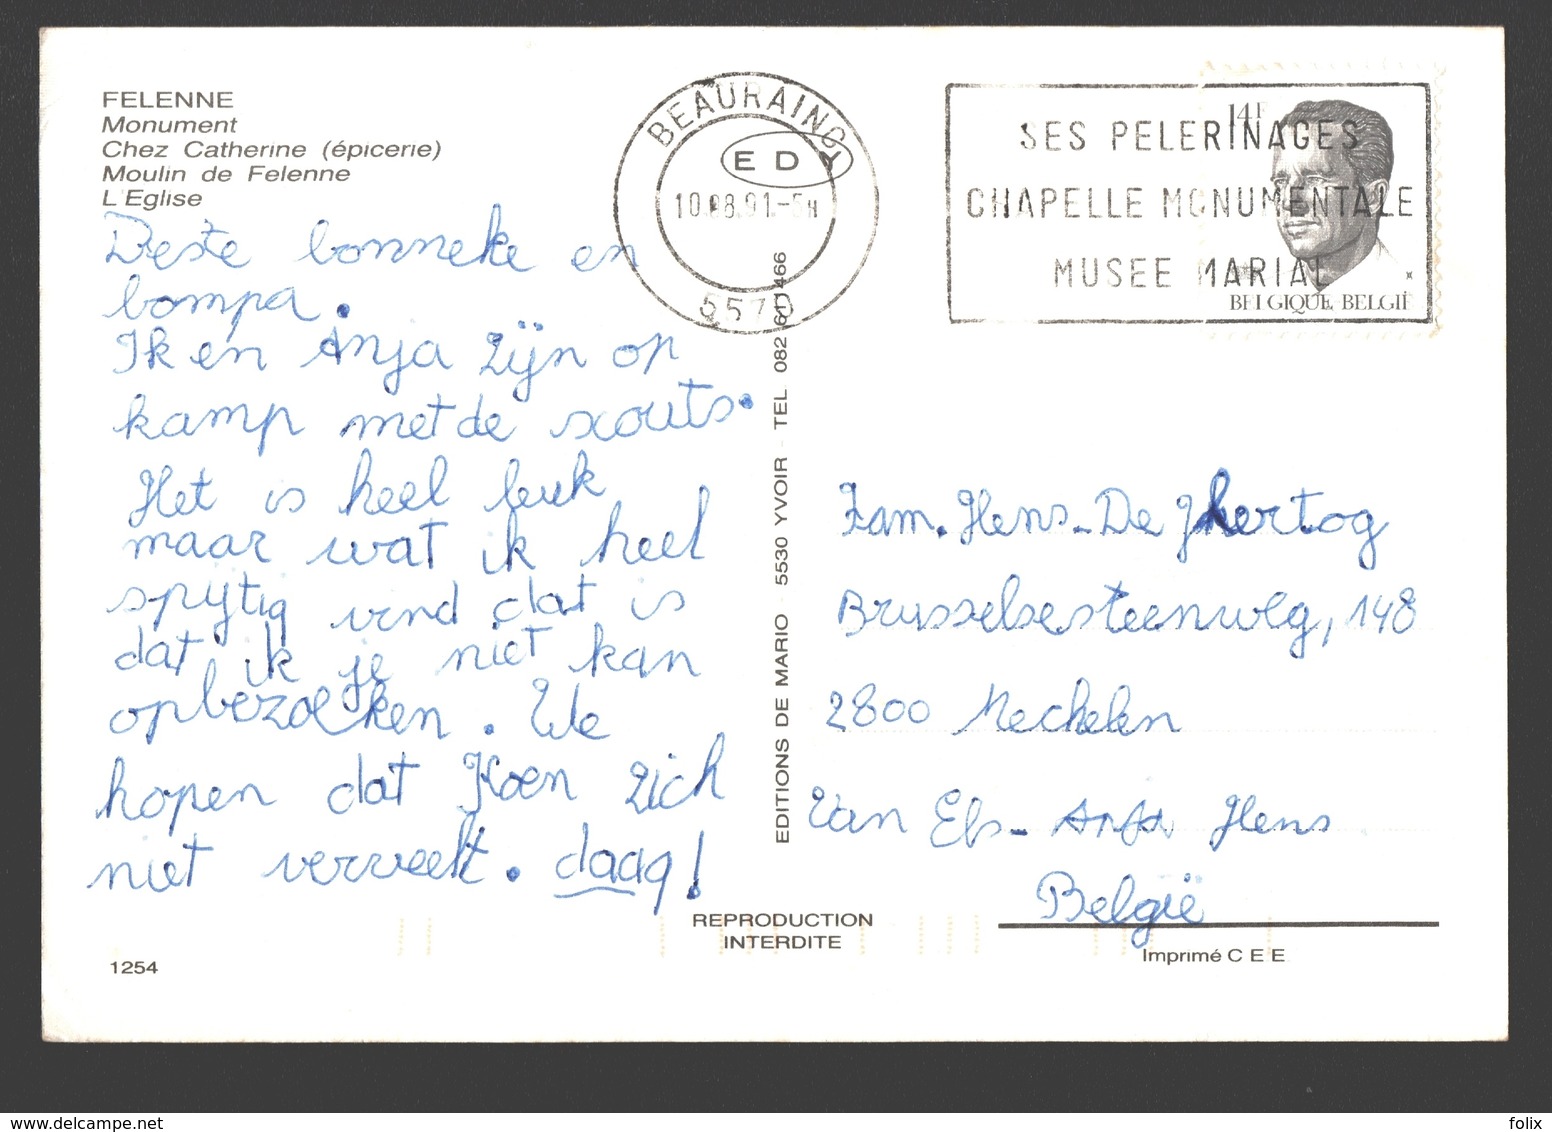 FELENNE
Monument
Chez Catherine (épicerie)
Moulin de Felenne
L'Eglise
Beste bonneke en
bompa.
Ik en Anja zijn op
kamp met de scouts.
Het is heel leuk
maar wat ik heel
spijtig vind dat is
dat ik je niet kan
opbezoeken. We
hopen dat Koen zich
niet verveelt. daag!
1254
BEAURAING
EDY
10.08.91.-
5570
SES PELERINAGES
CHAPELLE MONUMENTALE
MUSEE MARIAL
14F
BELGIQUE-BELGIË
EDITIONS DE MARIO - 5530 YVOIR - TEL 082 611466
REPRODUCTION
INTERDITE
Fam. Hens-De hertog
Brusselsesteenweg, 148
2800 Mechelen
Van Els- Anja Hens
België
Imprimé C E E
folix